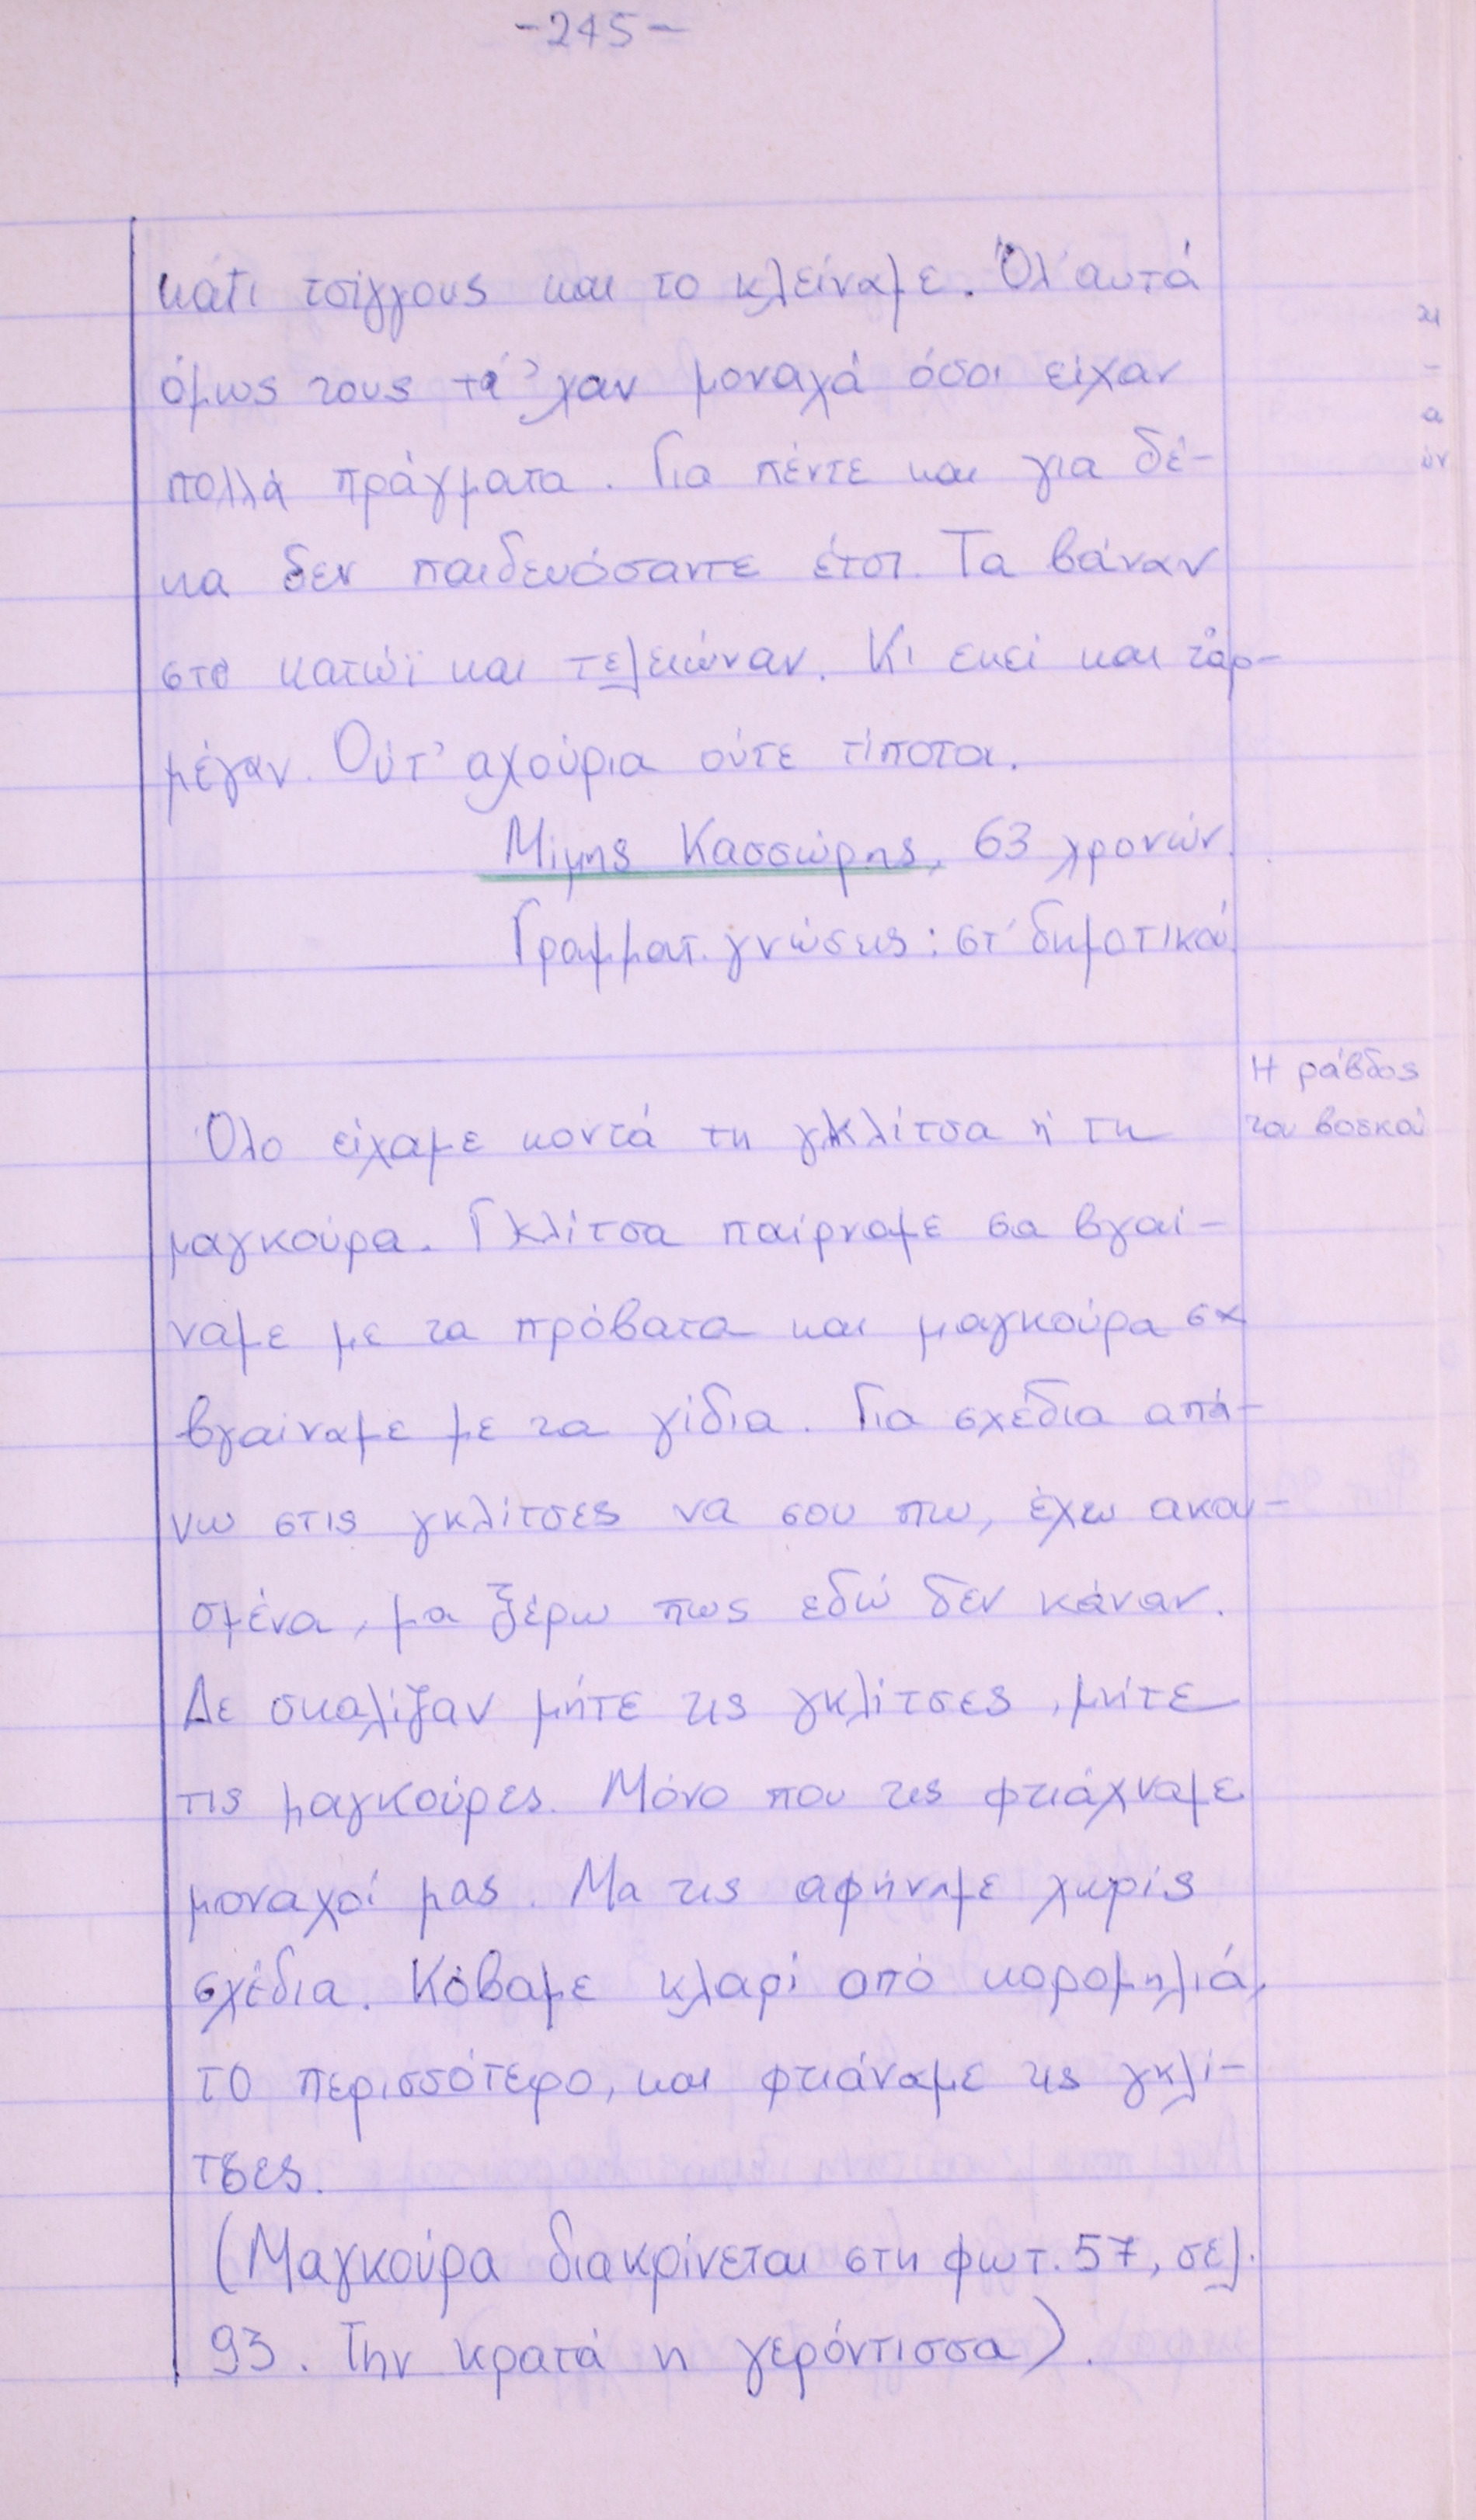 -245-
κάτι τσίγγους και το κλείναμε. Όλ' αυτά
όμως τους τά 'χαν μοναχά όσοι είχαν
πολλά πράγματα. Για πέντε και για δέ-
κα δεν παιδευόσαντε έτσι. Τα βάναν
στο κατώϊ και τελειώναν. Κι εκεί και τάρ-
μέγαν. Ούτ' αχούρια ούτε τίποτα.
Μίμης Κασσώρης, 63 χρονών.
Γραμματ. γνώσεις: στ' δημοτικού.
Η ράβδος
του βοσκού
Όλο είχαμε κοντά τη γκλίτσα ή τη
μαγκούρα. Γκλίτσα παίρναμε σα βγαί-
ναμε με τα πρόβατα και μαγκούρα σα
βγαίναμε με τα γίδια. Για σχέδια απά-
νω στις γκλίτσες να σου πω, έχω ακου-
σμένα, μα ξέρω πως εδώ δεν κάναν.
Δε σκαλίζαν μήτε τις γκλίτσες, μήτε
τις μαγκούρες. Μόνο που τις φτιάχναμε
μοναχοί μας. Μα τις αφήναμε χωρίς
σχέδια. Κόβαμε κλαρί από κορομηλιά,
το περισσότερο, και φτιάναμε τις γκλί-
τσες.
(Μαγκούρα διακρίνεται στη φωτ. 57, σελ.
93. Την κρατά η γερόντισσα).